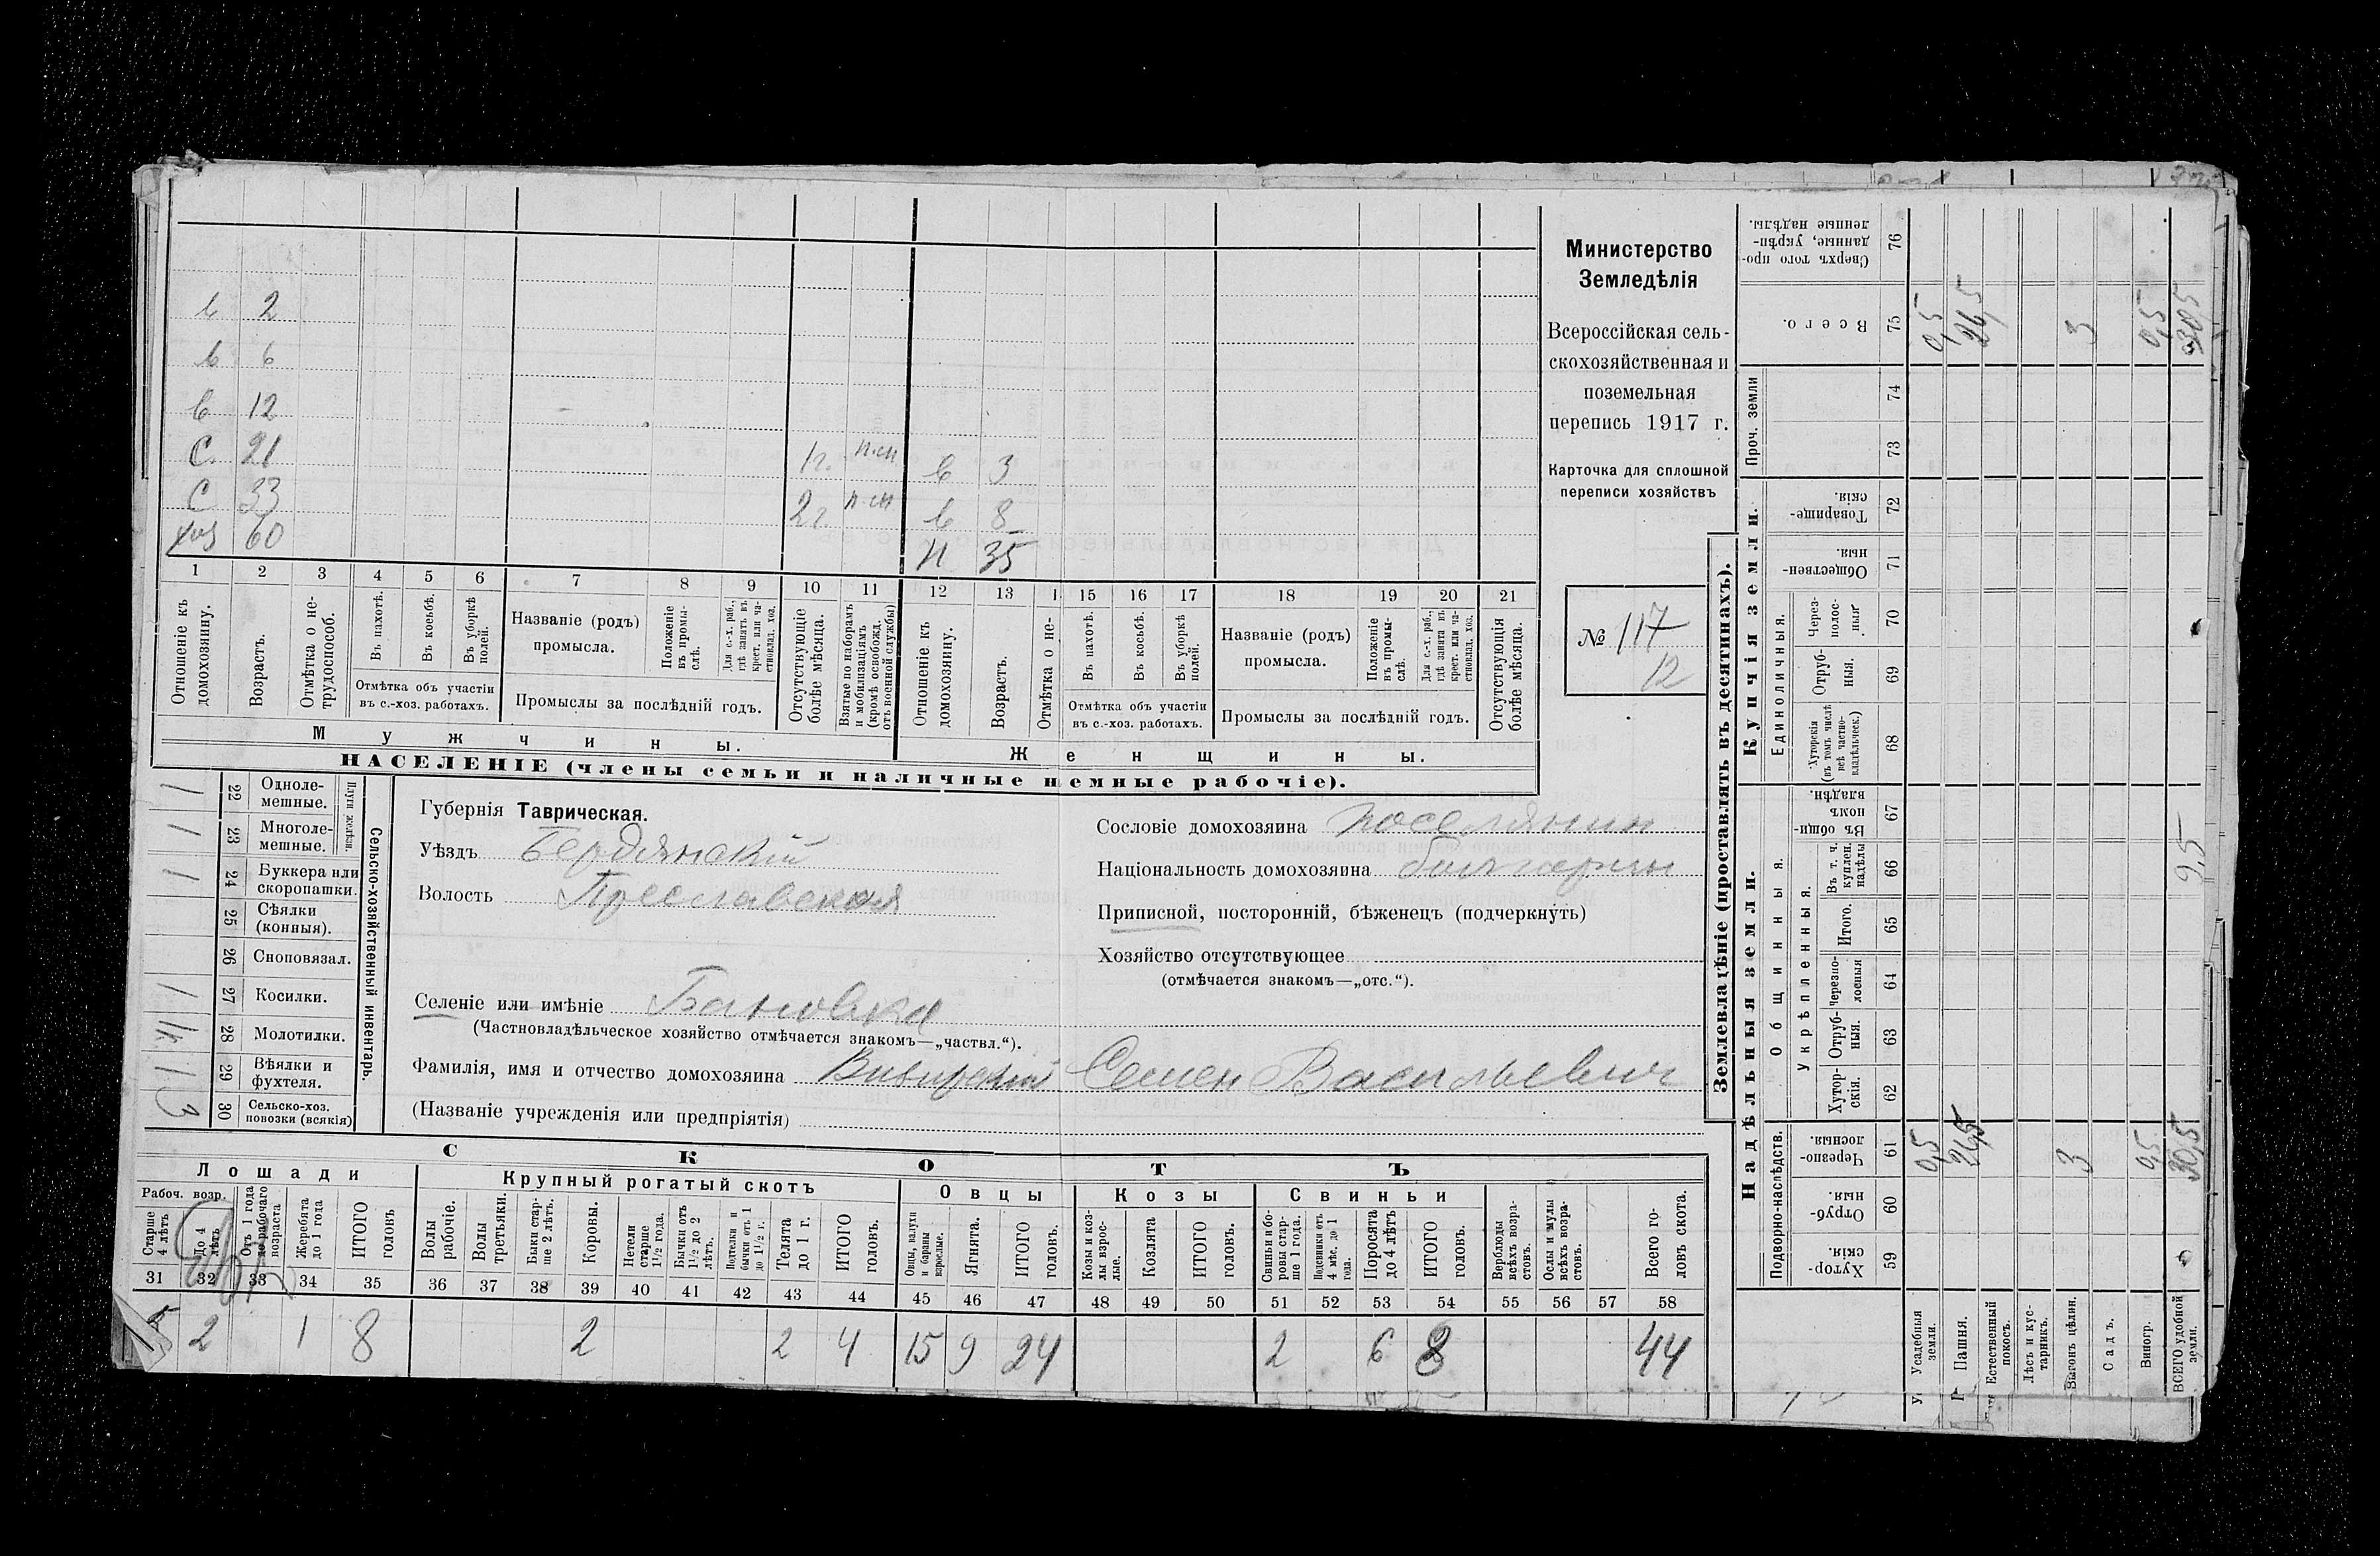 в 2
в 6
в 12
С. 21 1г. п.сп в 3
С 33 2г. п.сп в 8
хоз 60 Н 35
1 2 3 4 5 6 7 8 9 10 11 12 13 15 16 17 18 19 20 21
Отношеніе къ домохозяину.
Возрастъ.
Отмѣтка о не-
трудоспособ.
Въ пахотѣ.
Въ косьбѣ.
Въ уборкѣ
полей.
Отмѣтка объ участіи
въ с.-хоз. работахъ.
Названіе (родъ)
промысла.
Положеніе
въ промы-
слѣ.
Для с.-х. раб.,
гдѣ занятъ въ
крест. или ча-
стновлад. хоз.
Промыслы за послѣдній годъ.
Отсутствующіе
болѣе мѣсяца.
Взятые по наборамъ
и мобилизаціямъ
(кромѣ освобожд.
отъ военной службы)
Отношеніе къ
домохозяину.
Возрастъ.
Отмѣтка о не-
Въ пахотѣ.
Въ косьбѣ.
Въ уборкѣ
полей.
Отмѣтка объ участіи
въ с.-хоз. работахъ.
Названіе (родъ)
промысла.
Положеніе
въ промы-
слѣ.
Для с.-х. раб.,
гдѣ занята въ
крест. или ча-
стновлад. хоз.
Промыслы за послѣдній годъ.
Отсутствующія
болѣе мѣсяца.
Мужчины.
Женщины.
НАСЕЛЕНІЕ (члены семьи и наличные наемные рабочіе).
Министерство
Земледѣлія
Всероссійская сель-
скохозяйственная и
поземельная
перепись 1917 г.
Карточка для сплошной
переписи хозяйствъ
№ 117
12
1 22 Одноле-
мешные.
1 23 Многоле-
мешные.
Плуги желѣзн.
1 24 Буккера или
скоропашки.
25 Сѣялки
(конныя).
26 Сноповязал.
1 27 Косилки.
1к. 28 Молотилки.
1 29 Вѣялки и
фухтеля.
3 30 Сельско-хоз.
повозки (всякія)
Сельско-хозяйственный инвентарь.
Губернія Таврическая.
Уѣздъ Бердянскій
Волость Преславская
Селеніе или имѣніе Бановка
(Частновладѣльческое хозяйство отмѣчается знакомъ—„частвл.“).
Фамилія, имя и отчество домохозяина Семен Васильевич
(Названіе учрежденія или предпріятія)
Сословіе домохозяина поселянин
Національность домохозяина болгарин
Приписной, посторонній, бѣженецъ (подчеркнуть)
Хозяйство отсутствующее
(отмѣчается знакомъ—„отс.“).
СКОТЪ
Лошади
Рабоч. возр.
Старше
4 лѣтъ
До 4
лѣтъ
Отъ 1 года
до рабочаго
возраста
Жеребята
до 1 года
ИТОГО
головъ
Крупный рогатый скотъ
Волы
рабочіе.
Волы
третьяки.
Быки стар-
ше 2 лѣтъ.
Коровы.
Нетели
старше
1½ года.
Бычки отъ
1½ до 2
лѣтъ.
Подтелки и
бычки отъ 1
до 1½ г.
Телята
до 1 г.
ИТОГО
головъ.
Овцы
Овцы, валухи
и бараны
взрослые.
Ягнята.
ИТОГО
головъ.
Козы
Козы и коз-
лы взрос-
лые.
Козлята
ИТОГО
головъ.
Свиньи
Свиньи и бо-
ровы стар-
ше 1 года.
Подсвинки отъ
4 мѣс. до 1
года.
Поросята
до 4 лѣтъ
ИТОГО
головъ.
Верблюды
всѣхъ возра-
стовъ.
Ослы и мулы
всѣхъ возра-
стовъ.
Всего го-
ловъ скота.
31 32 33 34 35 36 37 38 39 40 41 42 43 44 45 46 47 48 49 50 51 52 53 54 55 56 57 58
5 2 1 8 2 2 4 15 9 24 2 6 8 44
Землевладѣніе (проставлять въ десятинахъ).
Надѣльныя земли.
Купчія земли.
Проч. земли
Подворно-наслѣдств.
Общинныя.
Укрѣпленныя.
Единоличныя.
Хутор-
скія. 59
Отруб-
ныя. 60
Черезпо-
лосныя 61
Хутор-
скія. 62
Отруб-
ныя. 63
Черезпо-
лосныя 64
Итого. 65
Въ т. ч.
куплен.
надѣлы 66
Въ общи-
номъ
владѣн. 67
Хуторскія
(въ томъ числѣ
всѣ частно-
владѣльческ.) 68
Отруб-
ныя. 69
Через-
полос-
ныя 70
Обществен-
ныя. 71
Товарище-
скія. 72
73
74
Всего. 75
Сверхъ того про-
данные, укрѣп-
ленные надѣлы. 76
Усадебныя
земли. 0,5 0,5
Пашня. 26,5 26,5
Естественный
покосъ.
Лѣсъ и кус-
тарникъ.
Выгонъ цѣлин. 3 3
Садъ.
Виногр. 0,5 0,5
ВСЕГО удобной
земли. 30,5 9,5 30,5